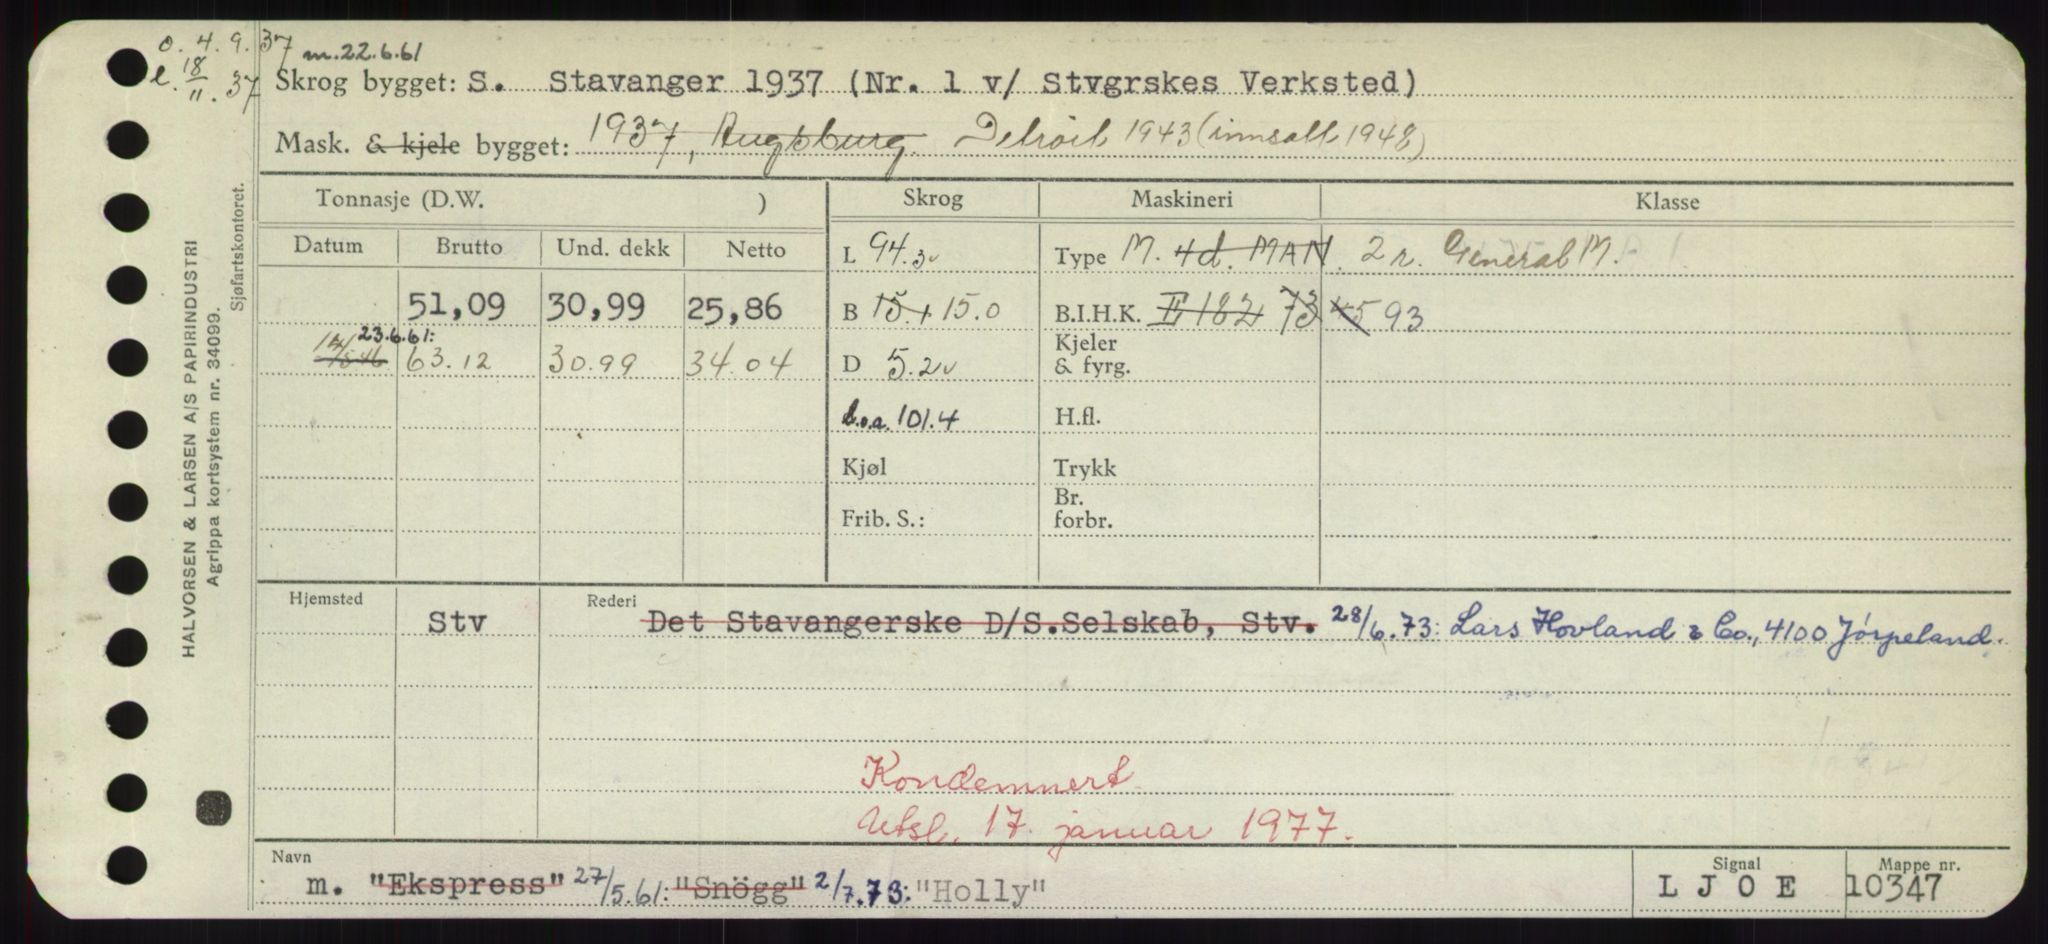 o. 4. 9. 37
m. 22.6.61
l. 18/11. 37
Skrog bygget: S. Stavanger 1937 (Nr. 1 v/ Stvgrskes Verksted)
Mask. & kjele bygget: 1937, Augsburg. Detroit 1943 (innsatt 1948)
HALVORSEN & LARSEN A/S PAPIRINDUSTRI
Agrippa kortsystem nr. 34099.
Sjøfartskontoret.
Tonnasje (D.W. ) Skrog Maskineri Klasse
Datum Brutto Und. dekk Netto
L 94.3 Type M. 4d. MAN. 2 r. General M.
51,09 30,99 25,86 B 15.1 15.0 B.I.H.K. II 182 73 45 93
23.6.61: 63.12 30.99 34.04 D 5.2 Kjeler & fyrg.
l.o.a. 101.4 H.fl.
Kjøl Trykk
Frib. S.: Br. forbr.
Hjemsted Stv Rederi Det Stavangerske D/S.Selskab, Stv. 28/6.73: Lars Hovland & Co., 4100 Jørpeland.
Kondemnert
Utsl. 17. januar 1977.
Navn Signal Mappe nr.
m. "Ekspress" 27/5.61: "Snögg" 2/7.73: "Holly" L J O E 10347